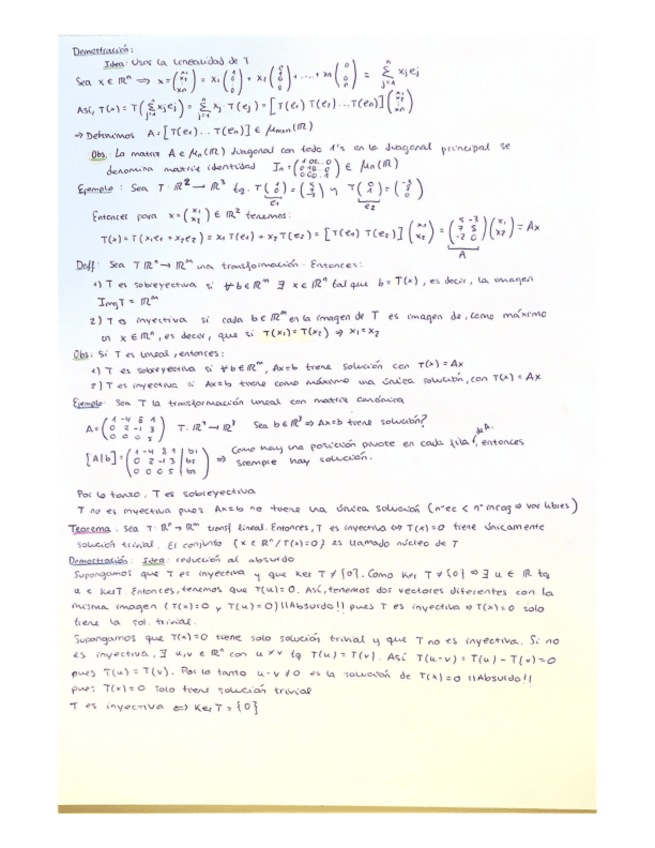 Demostración:
Idea: Usar la linealidad de T
Sea x ∈ ℝⁿ ⟹ x = (x₁ x₂ ⋮ xn) = x₁ (1 0 ⋮ 0) + x₂ (0 1 ⋮ 0) + ... + xn (0 0 ⋮ 1) = Σⁿⱼ₌₁ xjej
Así, T(x) = T(Σⁿⱼ₌₁ xjej) = Σⁿⱼ₌₁ xj · T(ej) = [T(e₁) T(e₂) ... T(en)] (x₁ x₂ ⋮ xn)
→ Definimos A = [T(e₁) ... T(en)] ∈ Mmxn(ℝ)
Obs. La matriz A ∈ Mn(ℝ) diagonal con todo 1's en la diagonal principal se
denomina matriz identidad In = ∈ Mn(ℝ)
Ejemplo: Sea T: ℝ² → ℝ³ tq. T(1 0) = (5 7 -2) y T(0 1) = (-3 8 0)
e₁ e₂
Entonces para x = (x₁ x₂) ∈ ℝ² tenemos:
T(x) = T(x₁e₁ + x₂e₂) = x₁T(e₁) + x₂T(e₂) = [T(e₁) T(e₂)] (x₁ x₂) = (5 -3 7 8 -2 0)(x₁ x₂) = Ax
A
Deff: Sea T ℝⁿ → ℝᵐ una transformación. Entonces:
1) T es sobreyectiva si ∀b ∈ ℝᵐ ∃ x ∈ ℝⁿ tal que b = T(x), es decir, la imagen
Img T = ℝᵐ
2) T es inyectiva si cada b ∈ ℝᵐ en la imagen de T es imagen de, como máximo
un x ∈ ℝⁿ, es decir, que si T(x₁) = T(x₂) ⟹ x₁ = x₂
Obs: Si T es lineal, entonces:
1) T es sobreyectiva si ∀b ∈ ℝᵐ, Ax=b tiene solución con T(x) = Ax
2) T es inyectiva si Ax=b tiene como máximo una única solución, con T(x) = Ax
Ejemplo: Sea T la transformación lineal con matriz canónica
A = (1 -4 8 1 0 2 -1 3 0 0 0 5) T: ℝ⁴ → ℝ³ Sea b ∈ ℝ³ ⟹ Ax=b tiene solución?
[A|b] = (1 -4 8 1 | b₁ 0 2 -1 3 | b₂ 0 0 0 5 | b₃) ⟹ Como hay una posición pivote en cada fila de A, entonces
siempre hay solución.
Por lo tanto, T es sobreyectiva
T no es inyectiva pues Ax=b no tiene una única solución (nº ec < nº incog ⟹ var libres)
Teorema. Sea T: ℝⁿ → ℝᵐ transf. lineal. Entonces, T es inyectiva ⟺ T(x)=0 tiene únicamente
solución trivial. El conjunto {x ∈ ℝⁿ / T(x)=0} es llamado núcleo de T
Demostración: Idea: reducción al absurdo
Supongamos que T es inyectiva y que Ker T ≠ {0}. Como Ker T ≠ {0} ⟹ ∃ u ∈ ℝ tq
u ∈ KerT. Entonces, tenemos que T(u)=0. Así, tenemos dos vectores diferentes con la
misma imagen (T(x)=0 y T(u)=0) !!Absurdo!! pues T es inyectiva ⟹ T(x)=0 solo
tiene la sol. trivial.
Supongamos que T(x)=0 tiene solo solución trivial y que T no es inyectiva. Si no
es inyectiva, ∃ u,v ∈ ℝⁿ con u ≠ v tq T(u) = T(v). Así T(u-v) = T(u) - T(v) = 0
pues T(u) = T(v). Por lo tanto u-v ≠ 0 es la solución de T(x)=0 !!Absurdo!!
pues T(x)=0 solo tiene solución trivial
T es inyectiva ⟺ Ker T = {0}